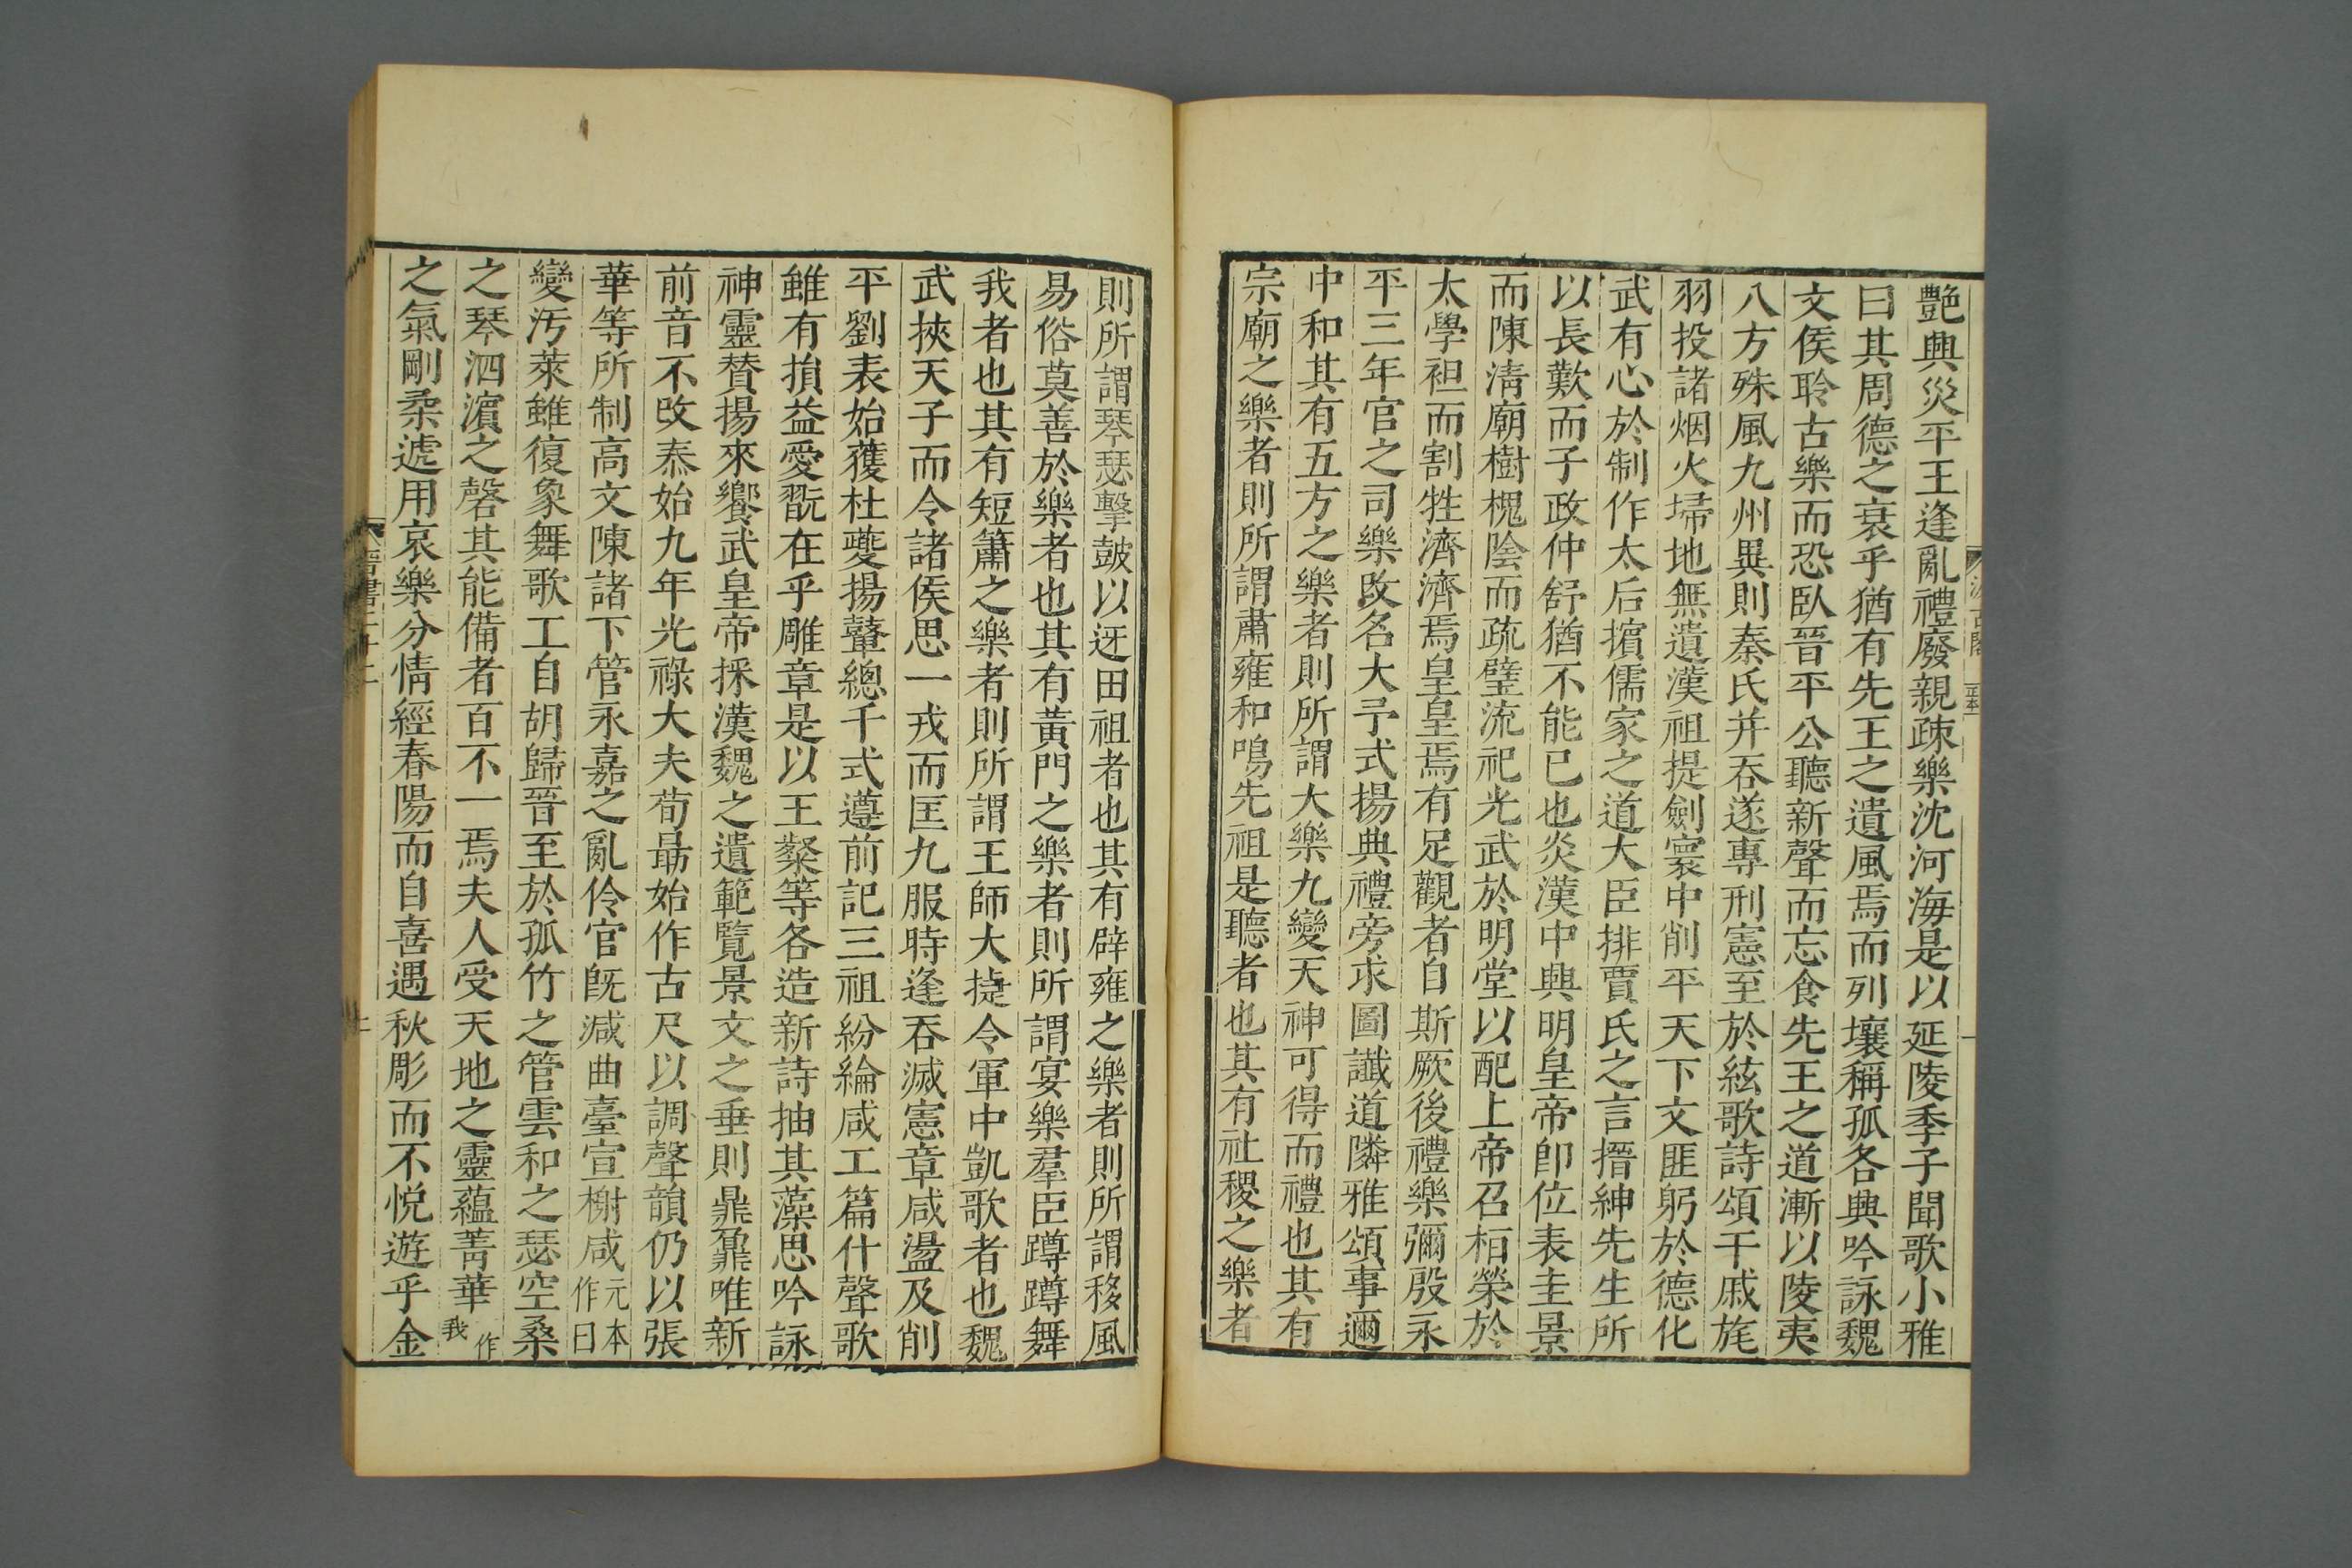 艷興災平王逢亂禮廢親疎樂沈河海是以延陵季子聞歌小雅
曰其周德之衰乎猶有先王之遺風焉而列壤稱孤各興吟詠魏
文侯聆古樂而恐臥晉平公聽新聲而忘食先王之道漸以陵夷
八方殊風九州異則秦氏幷吞遂專刑憲至於絃歌詩頌干戚旄
羽投諸烟火埽地無遺漢祖提劍寰中削平天下文匪躬於德化
武有心於制作太后擯儒家之道大臣排賈氏之言搢紳先生所
以長歎而子政仲舒猶不能已也炎漢中興明皇帝卽位表圭景
而陳淸廟樹槐陰而疏璧流祀光武於明堂以配上帝召桓榮於
太學袒而割牲濟濟焉皇皇焉有足觀者自斯厥後禮樂彌殷永
平三年官之司樂改名大予式揚典禮旁求圖讖道隣雅頌事邇
中和其有五方之樂者則所謂大樂九變天神可得而禮也其有
宗廟之樂者則所謂肅雍和鳴先祖是聽者也其有社稷之樂者
則所謂琴瑟擊鼓以迓田祖者也其有辟雍之樂者則所謂移風
易俗莫善於樂者也其有黃門之樂者則所謂宴樂羣臣蹲蹲舞
我者也其有短簫之樂者則所謂王師大捷令軍中凱歌者也魏
武挾天子而令諸侯思一戎而匡九服時逢吞滅憲章咸盪及削
平劉表始獲杜夔揚鼙總干式遵前記三祖紛綸咸工篇什聲歌
雖有損益愛翫在乎雕章是以王粲等各造新詩抽其藻思吟詠
神靈贊揚來饗武皇帝採漢魏之遺範覽景文之垂則鼎鼐唯新
前音不改泰始九年光祿大夫荀勗始作古尺以調聲韻仍以張
華等所制高文陳諸下管永嘉之亂伶官旣減曲臺宣榭咸元本作曰
變汚萊雖復象舞歌工自胡歸晉至於孤竹之管雲和之瑟空桑
之琴泗濵之磬其能備者百不一焉夫人受天地之靈蘊菁華作我
之氣剛柔遞用哀樂分情經春陽而自喜遇秋彫而不悅遊乎金